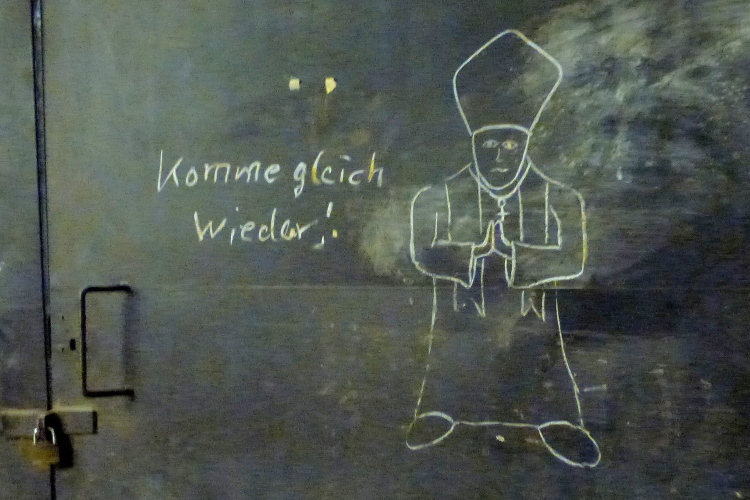 Komme gleich
wieder!